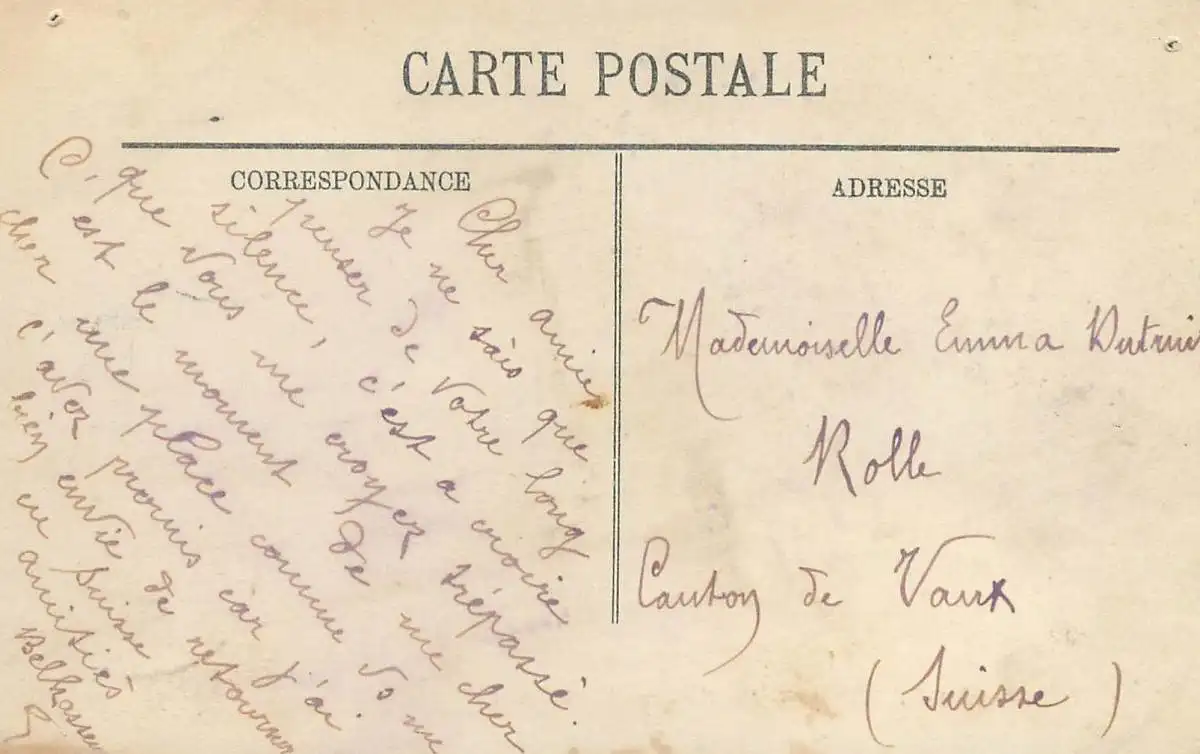 CARTE POSTALE
CORRESPONDANCE
ADRESSE
Cher amie
Je ne sais que
penser de votre long
silence, c'est a croire
que vous me croyez trépassé.
C'est le moment de me cher
cher une place comme vo me
l'avez promis car j'ai
bien envie de retourner
en Suisse
amitiés
Mademoiselle Emma
Rolle
Canton de Vaux
(Suisse)